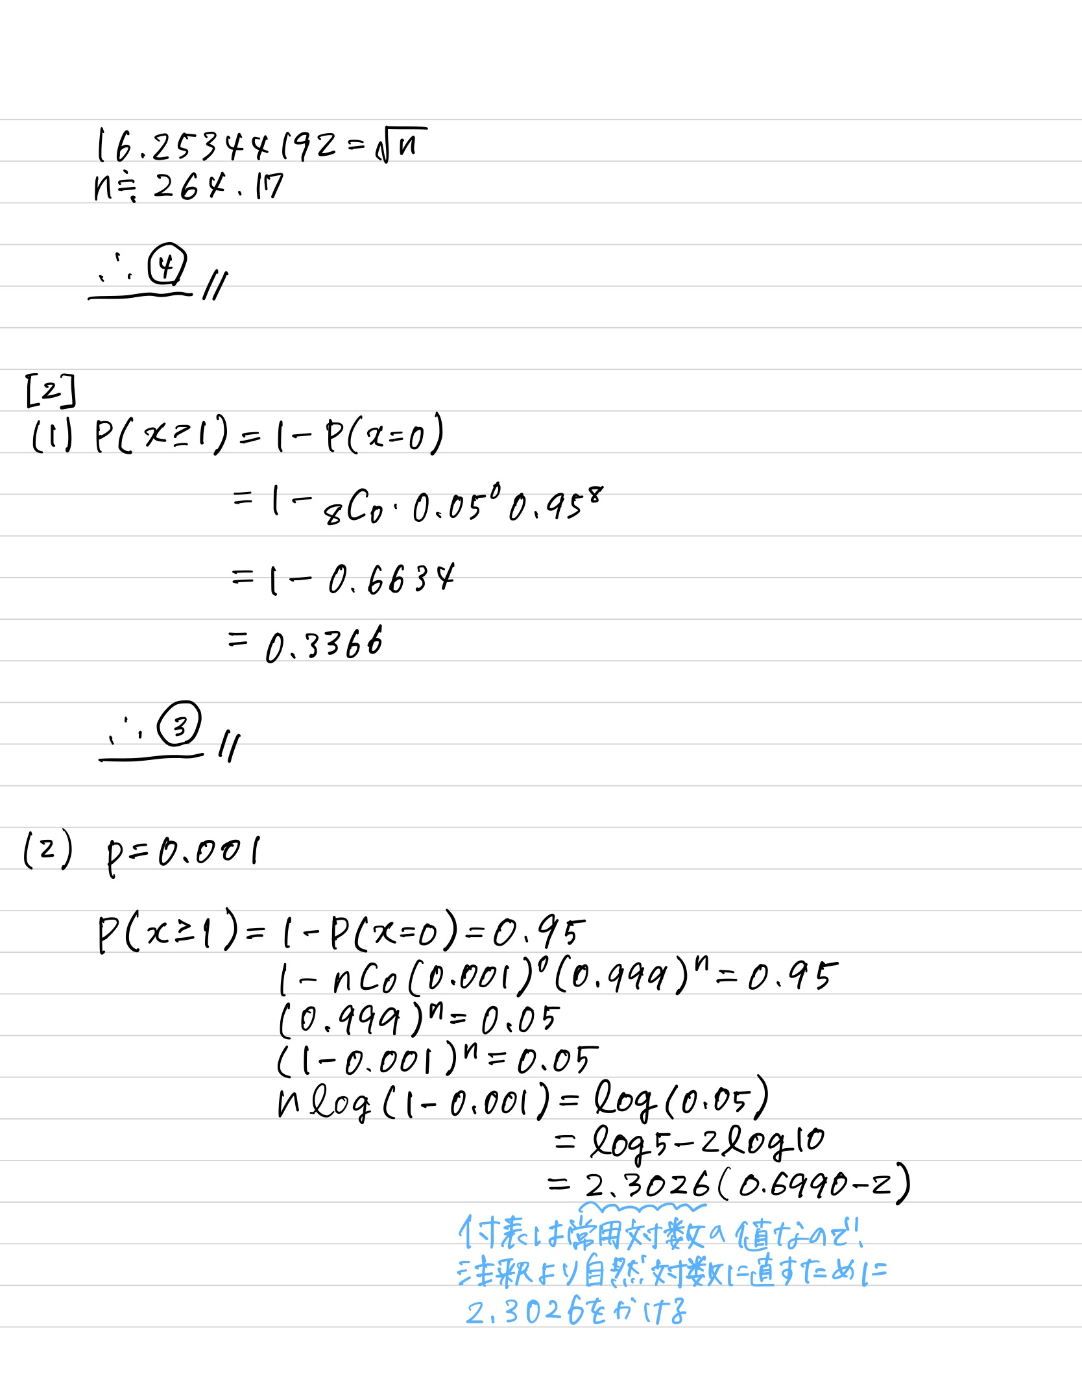 16.25344192=√n
n≒264.17
∴④//
[2]
(1) P(x≥1)=1-P(x=0)
=1-₈C₀・0.05⁰0.95⁸
=1-0.6634
=0.3366
∴③//
(2) p=0.001
P(x≥1)=1-P(x=0)=0.95
1-nC₀(0.001)⁰(0.999)ⁿ=0.95
(0.999)ⁿ=0.05
(1-0.001)ⁿ=0.05
nlog(1-0.001)=log(0.05)
=log5-2log10
=2.3026(0.6990-2)
付表は常用対数の値なので、
注釈より自然対数に直すために
2.3026をかける